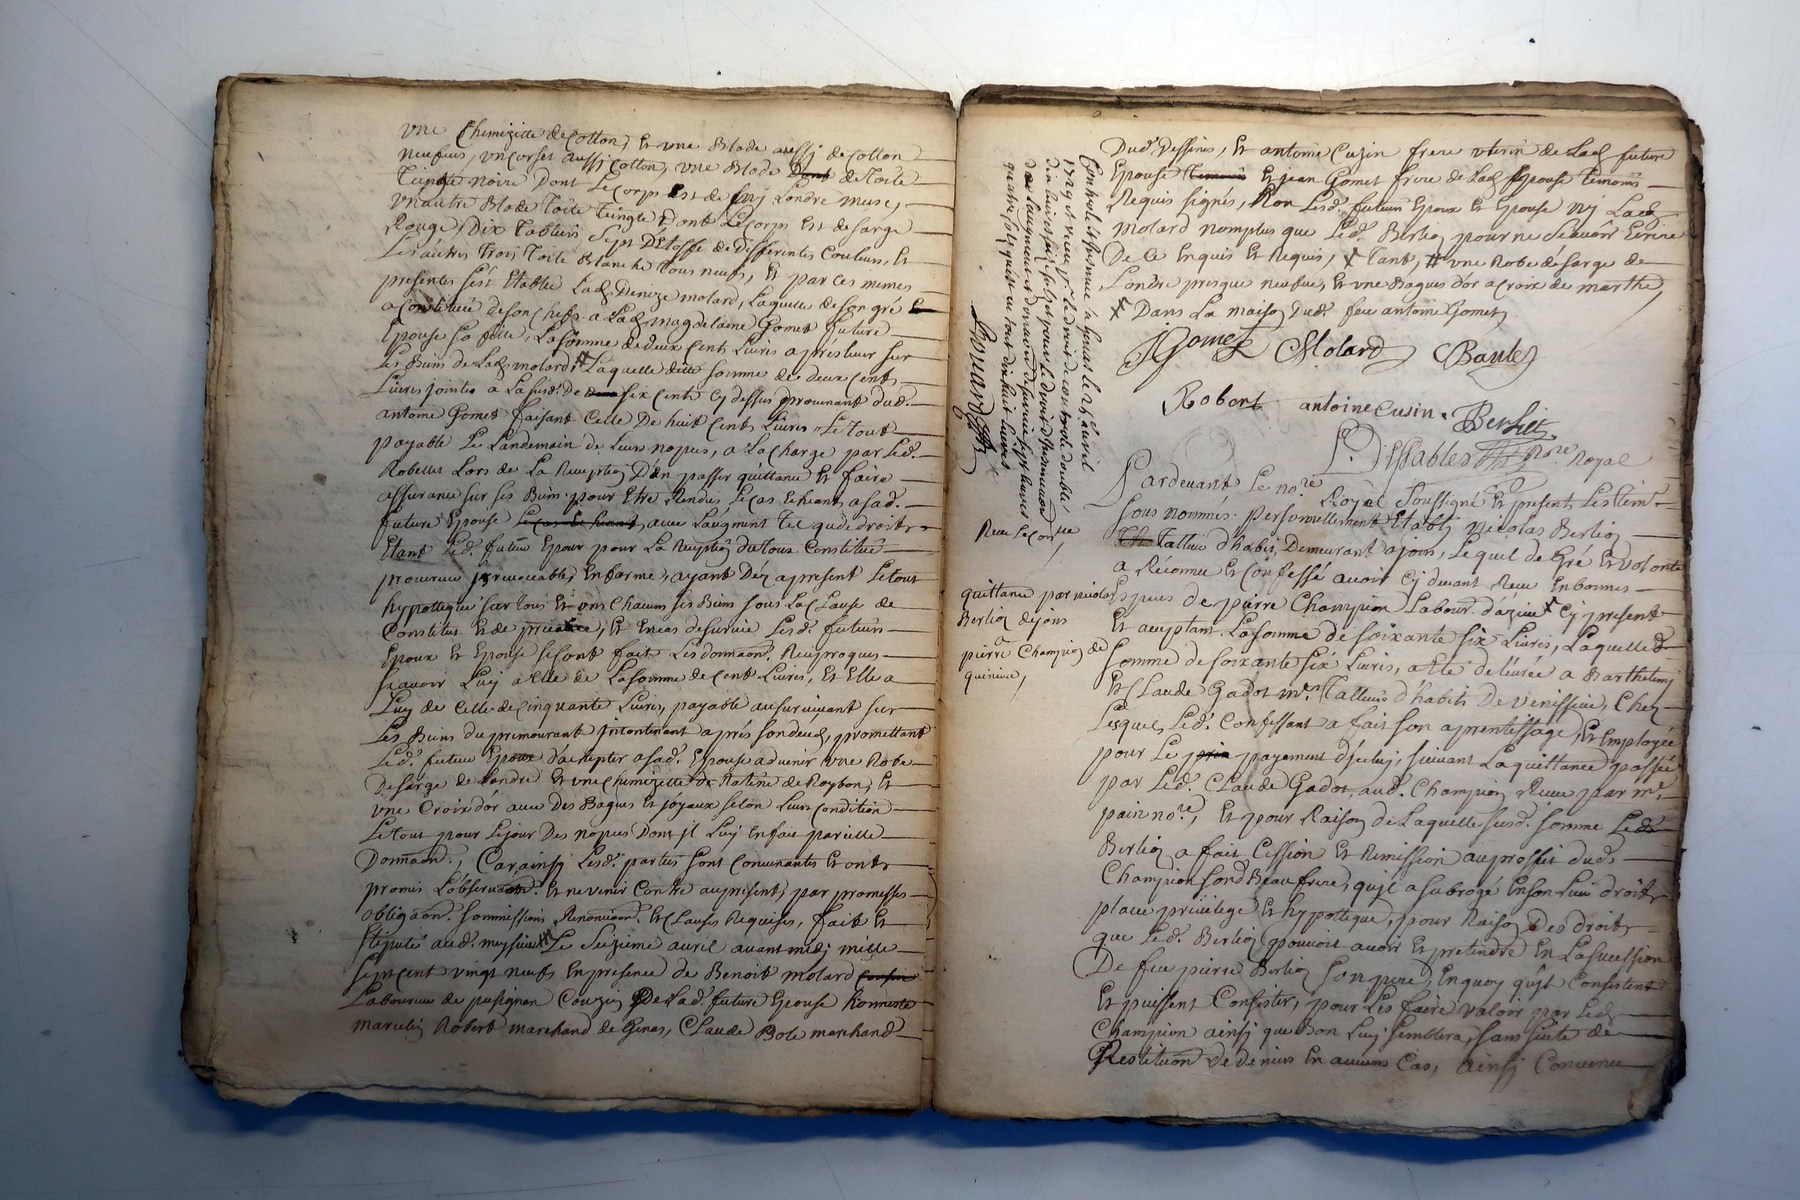 une Chemizitte de Cotton, Et une Blode aussj de Cotton
neufues, un Corset aussj Cotton, une Blode de Toile
Teingte noire Dont Le corps Est de Londre muse,
un autre Blode Toile Teingte, dont Le Corps Est de Sarge
Rouge, Dix Tabliers Sept D'Etoffe de Differentes Couleurs, Et
Les autres Trois Toile Blanche Tous neufs, Et par ces memes
presentes s'est Etablie Lad. Denize molard, Laquelle de son gré
a Constitué de son Chefs a Lad. magdelaine Gomet future
Epouse sa fille, La somme de deux Cent Livres a prendre sur
Les Biens de Lad. molard, Laquelle ditte somme de deux Cents
Livres jointes a La susd. de six Cents Cy dessus prouenant dud.
antoine Gomet faisant Celle De huit Cents Livres Le tout
payable Le Landemain de Leurs nopces, a La Charge par Led.
Lors de La Reception D'en passer quittance Et faire
assurance sur ses Biens pour Etre Rendus, Le Cas Echeant a sad.
future Epouse, auec L'augment Tel que de droit
Etant Led. futeur Epoux pour La Reception du tout Constitué
procureur jrreuocable, En forme, ayant Dez apresent Le tout
hypotteque sur Tous Et uns Chacuns ses Biens sous La Clause de
Constitut Et de precaire, Et En cas de suruie Lesd. futeurs
Epoux Et Epouse se sont fait Les donnaõn. Reciproques
scauoir Luy a Elle de La somme de Cent Liures, Et Elle a
Luy de Celle de Cinquante Livres, payable au suruiuant sur
Les Biens du premourant jncontinant aprés son deces, promettant
Led. futeur Epoux d'achepter a sad. Epouse aduenir une Robe
de sarge de Londre Et une Chemizette de Ratine de Roybon, Et
une Croix d'or auec Des Bagues Et joyaux selon Leur Condition
Le tout pour Le jour Des nopces Dont jl Luy En fait pareille
Donnaõn., Car ainsj Lesd. parties sont Conuenantes Et ont
promis L'obseruaõn. Et ne venir Contre au present, par promesses
obligaõn. sommissions Renonciaõn. Et Clauses Requises, fait Et
stipulé aud. Le Seizieme auril auant midj mille
Sept Cent vingt neufs En presence de Benoit molard
Laboureur de pusignan Couzin De Lad. future Epouse
marcelin Robert marchand de Genas, Claude Bole marchand
Dud. Dessines, Et antoine Cuzin frere uterin de Lad. future
Epouse Et jean Gomet frere de Lad. Epouse Temoins
Requis signés, Non Lesd. futeurs Epoux Et Epouse nj Lad.
molard nomplus que Led. Berlioz pour ne scauoir Ecrire
De ce Enquis Et Requis, une Robe de sarge de
Londre presque neufue, Et une Bague d'or a Croix de marthe,
Dans La maison Dud. feu antoine Gomet,
JGomet CMolard CBaule
Robert antoine Cusin. Berliet
Dessables Nore. Royal
Controlé & Insinué a Genas le 26 auril
1729
Bonard
Pardeuant Le nore. Royal Soussigné Et presents Les Tem.
sous nommés. personnellement Etablj nicolas Berlioz
talleur d'habis, Demeurant a jons, Lequel de Gré Et volonté
a Reconnu Et Confessé auoir Cy deuant Receu En bonnes
Especes de pierre Champion Labour. Cy present
Et acceptant La somme de soixante six Livres, Laquelle d.
somme de soixante six Livres, a Eté deliurée a Barthelemy
Et Claude Gadot mes. Talleurs d'habits De venissieu, Chez
Lesquels Led. Confessant a fait son aprentissage, Et Employée
pour Le payement d'jceluj, suiuant La quittance passée
par Led. Claude Gadot, aud. Champion Receue par me.
pain nore., Et pour Raison de Laquelle susd. somme Led.
Berlioz a fait Cession Et Remission au proffit dud.
Champion sond. Beau frere, qu'jl a subrogé En son Lieu droit
place priuilege Et hypotteque, pour Raison Des droits
que Led. Berlioz pouuoit auoir Et pretendre En La succession
De feu pierre Berlioz son pere, En quoy qu'jls Consistent
Et puissent Consister, pour Les faire valoir par Led.
Champion ainsj que Bon Luy semblera, sans suite de
Restitution de deniers En aucuns Cas, ainsj Conuenu
quittance par nicolas
Berlioz de jons
pierre Champion de